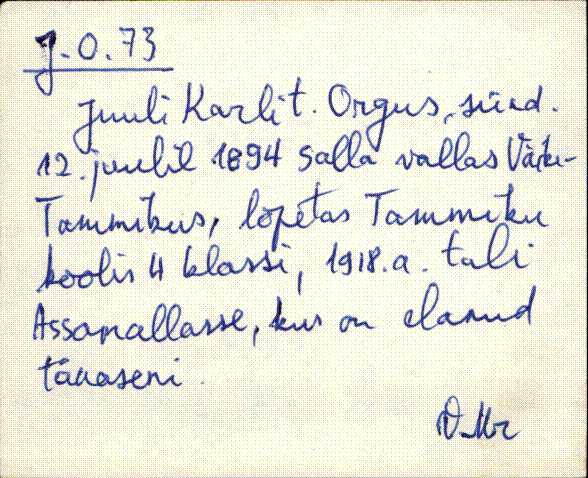 J.O.73
Juuli Karli t. Orgus, sünd.
12. juulil 1894 Salla vallas Väike-
Tammikus, lõpetas Tammiku
koolis 4 klassi, 1918.a. tuli
Assamallasse, kus on elanud
tänaseni.